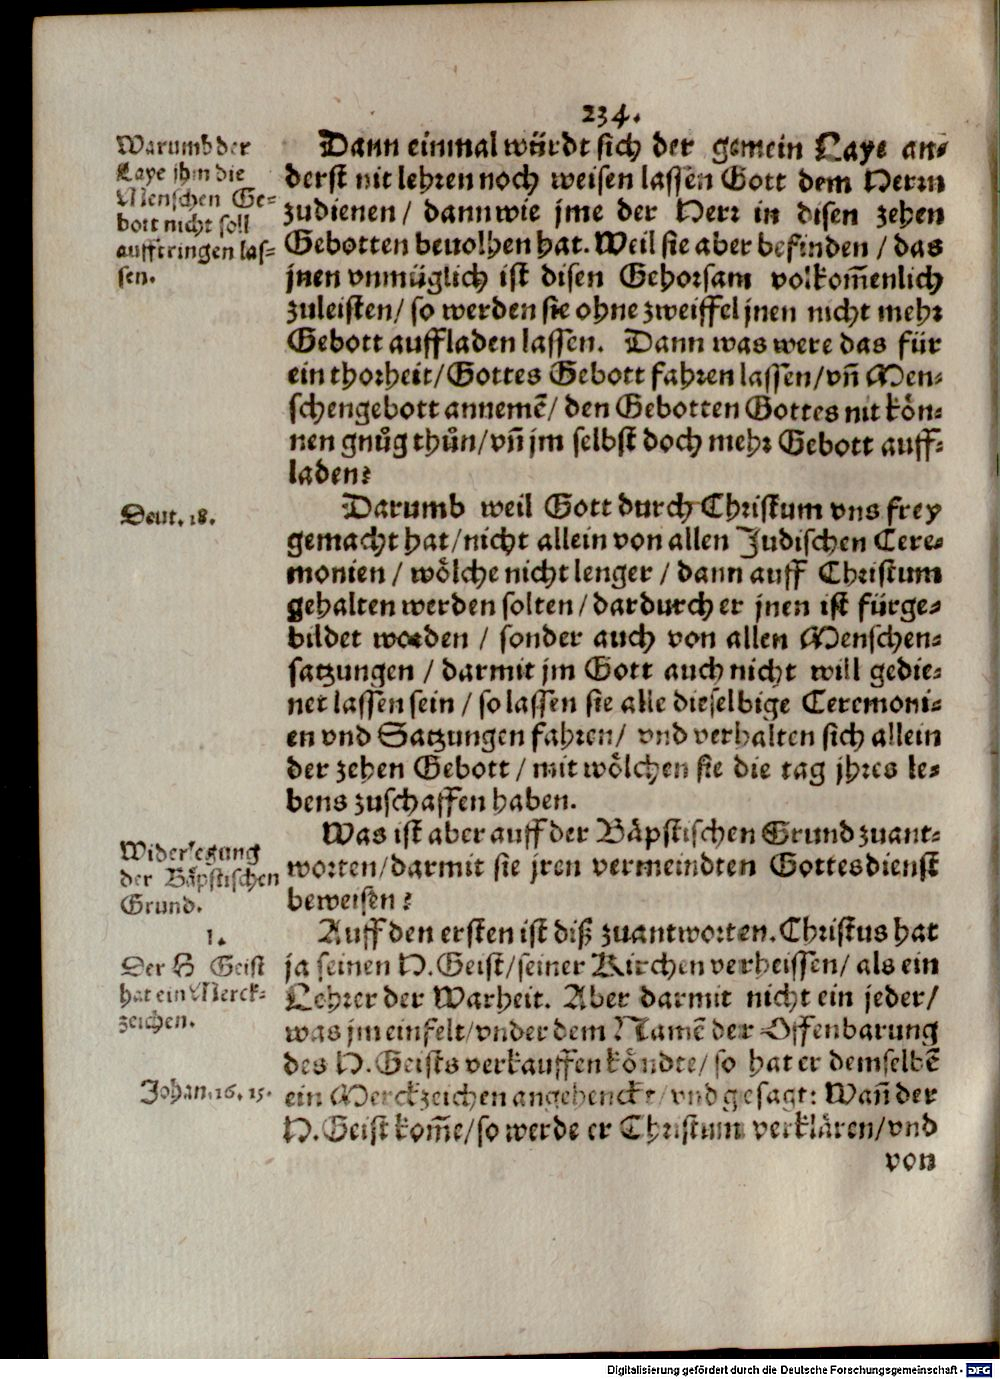 234.
Warumb der
Laye jhm die
Menschen Ge-
bott nicht soll
aufftringen las-
sen.
Dann einmal würdt sich der gemein Laye an-
derst nit lehren noch weisen lassen Gott dem Herrn
zudienen / dann wie jme der Herr in disen zehen
Gebotten beuolhen hat. Weil sie aber befinden / das
jnen vnmüglich ist disen Gehorsam volkom̃enlich
zuleisten / so werden sie ohne zweiffel jnen nicht mehr
Gebott auffladen lassen. Dann was were das für
ein thorheit / Gottes Gebott fahren lassen / vñ Men-
schengebott annemẽ / den Gebotten Gottes nit kön-
nen gnůg thůn / vñ jm selbst doch mehr Gebott auff-
laden?
Deut. 18.
Darumb weil Gott durch Christum vns frey
gemacht hat / nicht allein von allen Judischen Cere-
monien / wölche nicht lenger / dann auff Christum
gehalten werden solten / dardurch er jnen ist fürge-
bildet worden / sonder auch von allen Menschen-
satzungen / darmit jm Gott auch nicht will gedie-
net lassen sein / so lassen sie alle dieselbige Ceremoni-
en vnd Satzungen fahren / vnd verhalten sich allein
der zehen Gebott / mit wölchen sie die tag jhres le-
bens zuschaffen haben.
Widerlegung
der Bäpstischen
Grund.
Was ist aber auff der Bäpstischen Grund zuant-
worten / darmit sie jren vermeindten Gottesdienst
beweisen?
1.
Der H Geist
hat ein Merck-
zeichen.
Auff den ersten ist diß zuantworten. Christus hat
ja seinen H. Geist / seiner Kirchen verheissen / als ein
Lehrer der Warheit. Aber darmit nicht ein jeder /
was jm einfelt / vnder dem Namẽ der Offenbarung
des H. Geists verkauffen köndte / so hat er demselbẽ
Johan. 16. 15.
ein Merckzeichen angehenckt / vnd gesagt: Wañ der
H. Geist kom̃e / so werde er Christum verklären / vnd
von
Digitalisierung gefördert durch die Deutsche Forschungsgemeinschaft - DFG